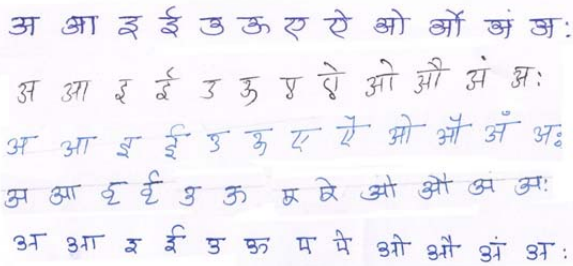 अ आ इ ई उ ऊ ए ऐ ओ औ अं अः
अ आ इ ई उ ऊ ए ऐ ओ औ अं अः
अ आ इ ई उ ऊ ए ऐ ओ औ अँ अः
अ आ इ ई उ ऊ ए ऐ ओ औ अं अः
अ आ इ ई उ ऊ ए ऐ ओ औ अं अः